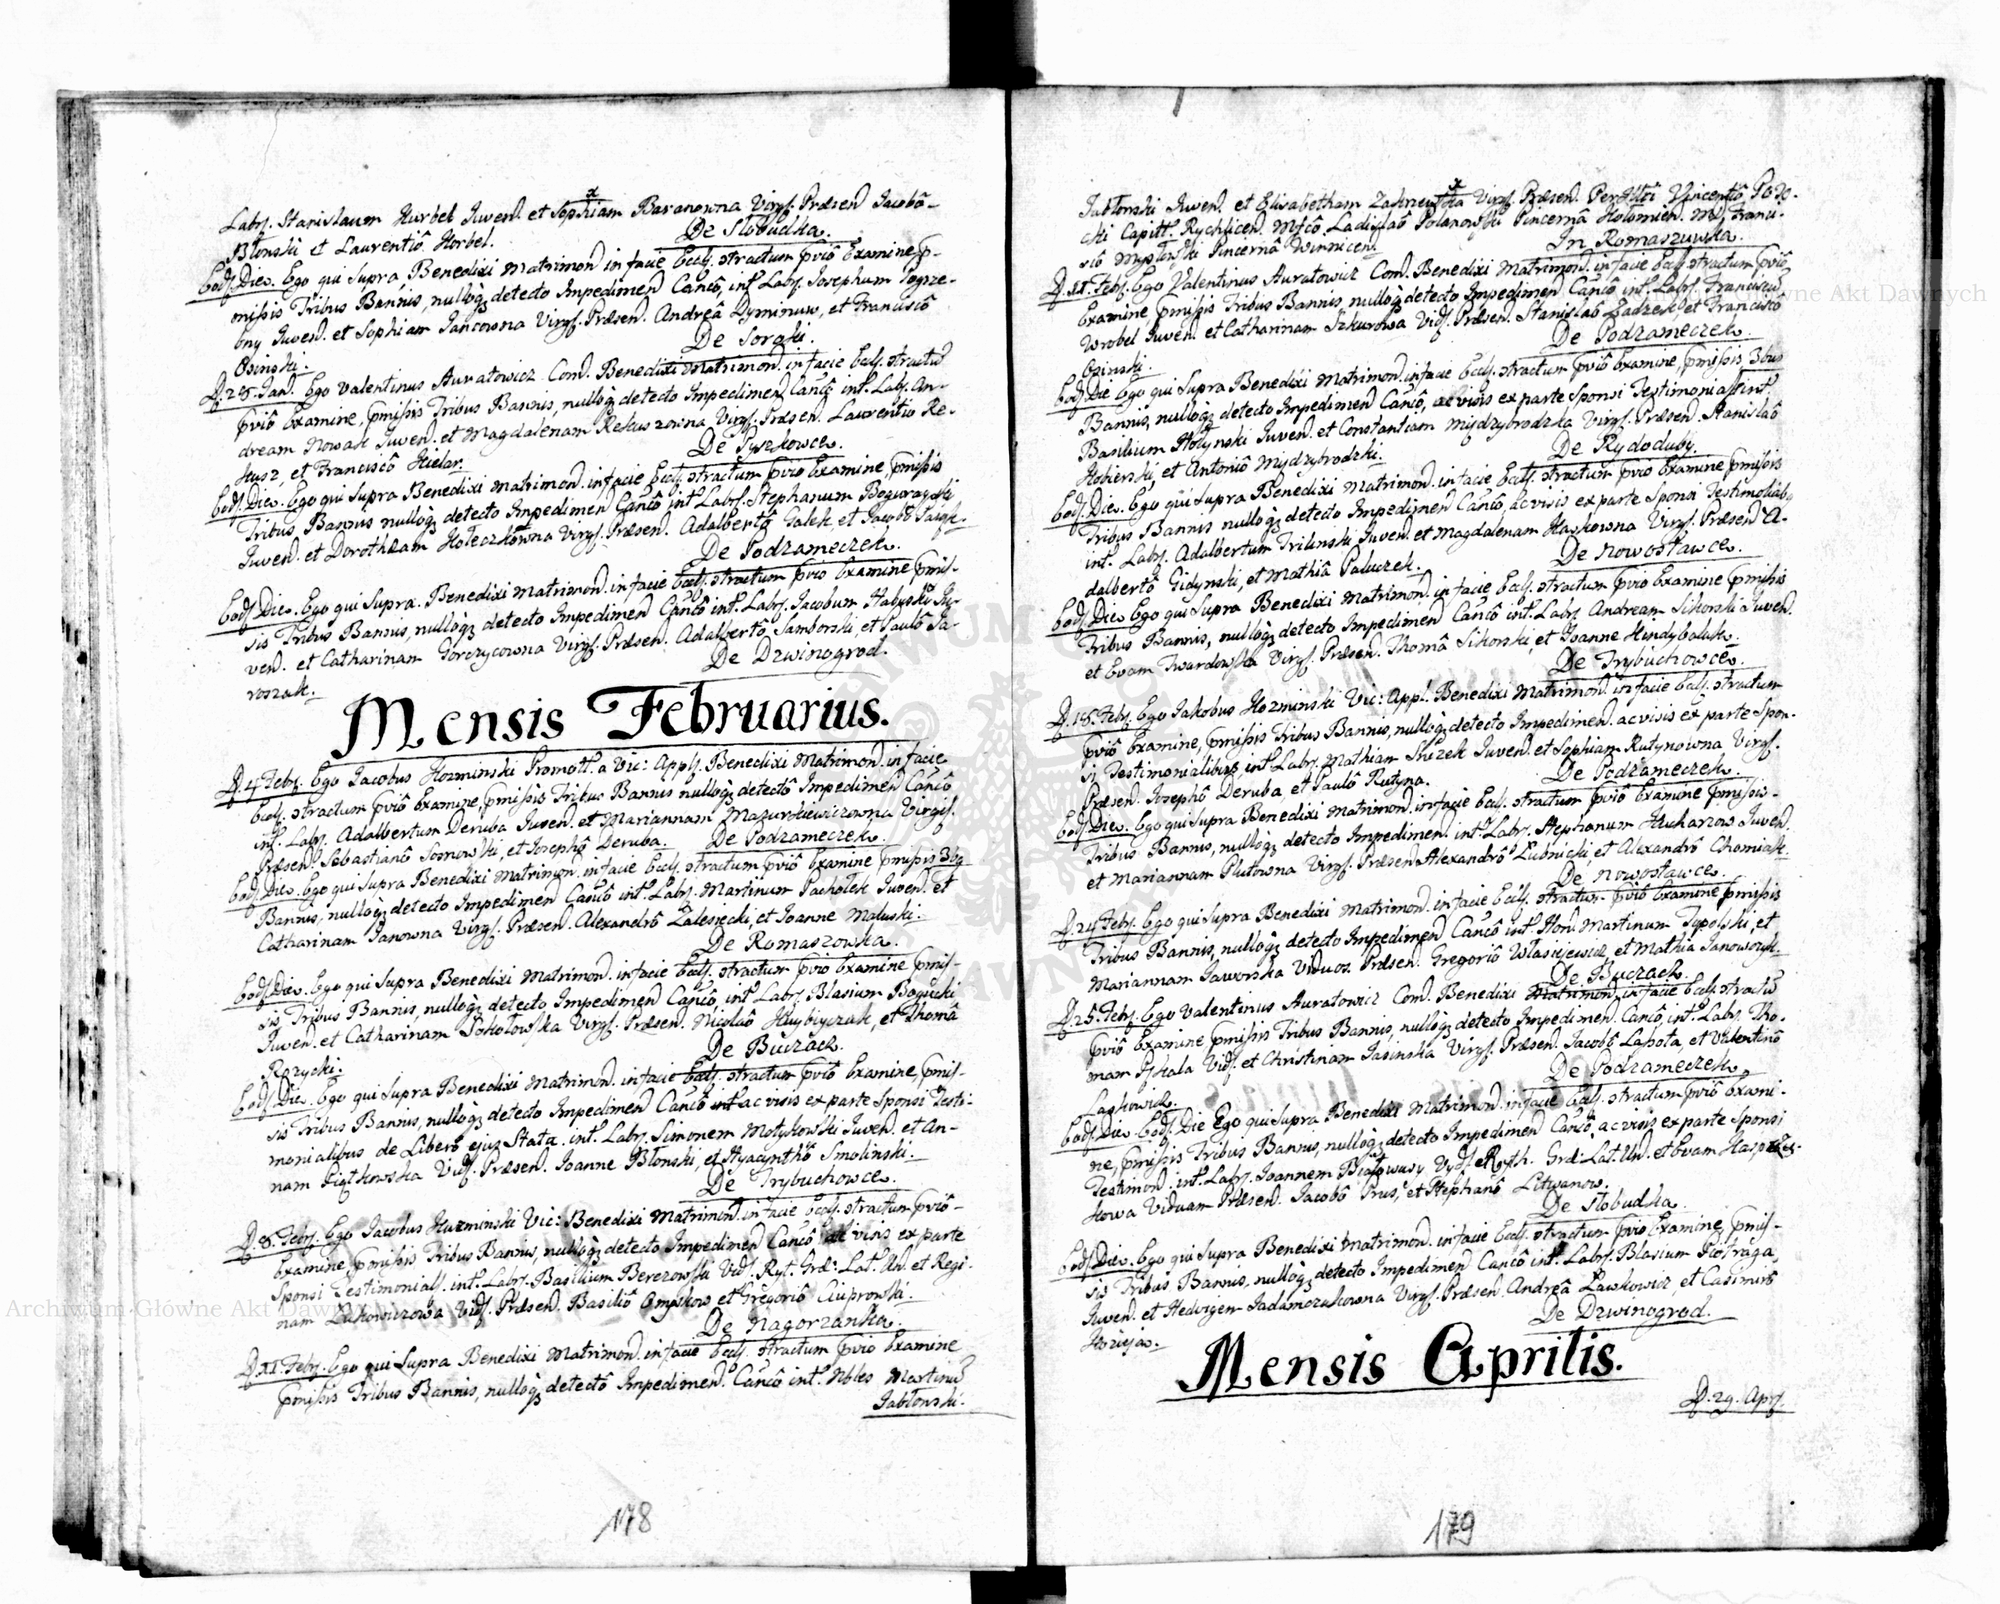 Labs. Stanislaum Hurbel Iuven. et Sophiam Baranowna Virgs. Præsen. Iacobô
Błonski et Laurentiô Horbel.
De Słobudka.
Eod. Die. Ego qui Supra, Benedixi Matrimon. in facie Eccls. stractum prviô Examine, p-
missis Tribus Bannis, nullôq3 detecto Impedimen. Cancô, int. Labs. Iosephum Pogrze-
bny Iuven. et Sophiam Jancowna Virgs. Præsen. Andreâ Dyminuw, et Franciscô
Osinski.
De Soroki.
D. 28. Jan. Ego Valentinus Auratowicz Com. Benedixi Matrimon. in facie Eccls. stractũ
prviô Examine, pmissis Tribus Bannis, nullôq3 detecto Impedimen. Cancô int. Labs. An-
dream Nowak Iuven. et Magdalenam Rekuszowna Virgs. Præsen. Laurentio Re-
kusz, et Franciscô Kielar.
De Pyszkowce.
Eod. Die. Ego qui Supra Benedixi Matrimon. in facie Eccls. stractum prvio Examine, pmissis
Tribus Bannis nullôq3 detecto Impedimen. Cancô int. Labs. Stephanum
Iuven. et Dorotheam Holeczkowna Virgs. Præsen. Adalbertô Galek, et Iacobô
De Podzameczek.
Eod. Die. Ego qui Supra. Benedixi Matrimon. in facie Eccls. stractum prvio Examine pmis-
sis Tribus Bannis, nullôq3 detecto Impedimen. Cancô int. Labs. Iacobum Iu-
ven. et Catharinam Gorczycowna Virgs. Præsen. Adalbertô Samborski, et Paulô Ja-
roszak.
De Dzwinogrod.
Mensis Februarius.
D. 4. Febs. Ego Jacobus Kozminski Promott. a Vic: Appls. Benedixi Matrimon. in facie
Eccls. stractum prviô Examine, pmissis Tribus Bannis nullôq3 detectô Impedimen. Cancô,
int. Labs. Adalbertum Deruba Iuven. et Mariannam Mazurkiewiczowna Virgis.
Præsen. Sebastianô Sosnowski, et Iosephô Deruba. De Podzameczek.
Eod. Die. Ego qui Supra Benedixi Matrimon. in facie Eccls. stractum prviô Examine, pmissis 3bq
Bannis, nullôq3 detecto Impedimen. Cancô int. Labs. Martinum Pachołek Iuven. et
Catharinam Janowna Virgs. Præsen. Alexandrô Zalesiecki, et Ioanne Maluski.
De Romaszowka.
Eod. Die. Ego qui Supra Benedixi Matrimon. in facie Eccls. stractum prvio Examine pmis-
sis Tribus Bannis, nullôq3 detecto Impedimen. Cancô, int. Labs. Blasium Bogucki
Iuven. et Catharinam Sokołowska Virgs. Præsen. Nicolaô et Thomâ
Rozycki.
De Buczacz.
Eod. Die. Ego qui Supra Benedixi Matrimon. in facie Eccls. stractum prviô Examine, pmis-
sis Tribus Bannis, nullôq3 detecto Impedimen. Cancô ac visis ex parte Sponsi Testi-
monialibus de Liberô ejus Statu. int. Labs. Simonem Motykowski Iuven. et An-
nam Piątkowska Vid. Præsen. Ioanne Błonski, et Hyacynthô Smolinski.
De Trybuchowce.
D. 8. Febs. Ego Jacobus Kuzminski Vic: Benedixi Matrimon. in facie Eccls. stractum prviô
Examine, pmissis Tribus Bannis, nullôq3 detecto Impedimen. Cancô ac visis ex parte
Sponsi Testimonials. int. Labs. Basilium Berezowski Vid. Ryt. Græ: Lat. Un. et Regi-
nam Vid. Præsen. Basiliô et Gregoriô Ciuprowski.
De Nagorzanka.
D. 11. Febs. Ego qui Supra Benedixi Matrimon. in facie Eccls. stractum prvio Examine
pmissis Tribus Bannis, nullôq3 detectô Impedimen. Cancô int. Nbles Martinũ
Jabłonski.
178
Jabłonski Iuven. et Elisabetham Virgs. Præsen. Vincentiô Pozo-
cki Capitt. Rychlicen. Mfcô. Ladislaô Polanowski Pincernâ Kołomien. Franci-
scô Mysłowski Pincernâ Winnicen.
In Romaszuwka.
D. 11. Febs. Ego Valentinus Auratowicz Com. Benedixi Matrimon. in facie Eccls. stractum prviô
Examine pmissis Tribus Bannis nullôq3 detecto Impedimen. Cancô int. Labs. Franciscũ
Wrobel Iuven. et Catharinam Szkurowa Vid. Præsen. Stanislaô Ładzek et Francisco
Osinski.
De Podzameczek.
Eod. Die Ego qui Supra Benedixi Matrimon. in facie Eccls. stractum prviô Examine, pmissis 3bus
Bannis, nullôq3 detecto Impedimen. Cancô, ac visis ex parte Sponsi Testimonials int.
Basilium Hołynski Iuven. et Constantiam Międzybrodzka Virgs. Præsen. Stanislaô
Kobierski, et Antoniô Mydzybrodzki.
De Rydoduby.
Eod. Die. Ego qui Supra Benedixi Matrimon. in facie Eccls. stractum prvio Examine pmissis
Tribus Bannis nullôq3 detecto Impedimen. Cancô, ac visis ex parte Sponsi Testimoliabq
int. Labs. Adalbertum Trilinski Iuven. et Magdalenam Haskowna Virgs. Præsen. A-
dalbertô Gidynski, et Mathiâ Paluczek.
De Nowostawce.
Eod. Die Ego qui Supra Benedixi Matrimon. in facie Eccls. stractum prvio Examine, pmissis
Tribus Bannis, nullôq3 detecto Impedimen. Cancô int. Labs. Andream Sikorski Iuven.
et Evam Twardowska Virgs. Præsen. Thomâ Sikorski, et Ioanne
De Trybuchowce.
D. 18. Febs. Ego Jakobus Kozminski Vic: Appl. Benedixi Matrimon. in facie Eccls. stractum
prviô Examine, pmissis Tribus Bannis, nullôq3 detecto Impedimen. ac visis ex parte Spon-
si Testimonialibus, int. Labs. Mathiam Iuven. et Sophiam Rutynowna Virgs.
Præsen. Iosephô Deruba, et Paulô Rutyna.
De Podzameczek.
Eod. Die. Ego qui Supra Benedixi Matrimon. in facie Eccls. stractum prviô Examine pmissis-
Tribus Bannis, nullôq3 detecto Impedimen. int. Labs. Stephanum Iuven.
et Mariannam Plutowna Virgs. Præsen. Alexandrô Łubnicki, et Alexandrô Chomiak.
De Nowostawce.
D. 24. Febs. Ego qui Supra Benedixi Matrimon. in facie Eccls. stractum prviô Examine pmissis
Tribus Bannis, nullôq3 detecto Impedimen. Cancô int. Hon. Martinum Typolski, et
Mariannam Jaworska Viduos. Præsen. Gregoriô Własiejewicz, et Mathia
De Buczacz.
D. 25. Febs. Ego Valentinus Auratowicz Com. Benedixi Matrimon. in facie Eccls. stractũ
prviô Examine pmissis Tribus Bannis, nullôq3 detecto Impedimen. Cancô, int. Labs. Tho-
mam Vid. et Christinam Jasinska Virgs. Præsen. Iacobô Łapota, et Valentinô
Laskowicz.
De Podzameczek
Eod. Die. Eod. Die Ego qui Supra Benedixi Matrimon. in facie Eccls. stractum prviô Exami-
ne, pmissis Tribus Bannis, nullôq3 detecto Impedimen. Cancô, ac visis ex parte Sponsi
Testimon. int. Labs. Ioannem Vyd. et Ryth. Græ: Lat. Un. et Evam
kowa Viduam Præsen. Iacobô Prus, et Stephanô Litwanow.
De Słobudka.
Eod. Die. Ego qui Supra Benedixi Matrimon. in facie Eccls. stractum prvio Examine, pmis-
sis Tribus Bannis, nullôq3 detecto Impedimen. Cancô int. Labs. Blasium
Iuven. et Hedvigem Jadamczukowna Virgs. Præsen. Andreâ Lawkowicz, et Casimirô
Koziejas.
De Dzwinogrod.
Mensis Aprilis.
D. 29. Aprs.
179
Archiwum Główne Akt Dawnych
Archiwum Główne Akt Dawnych